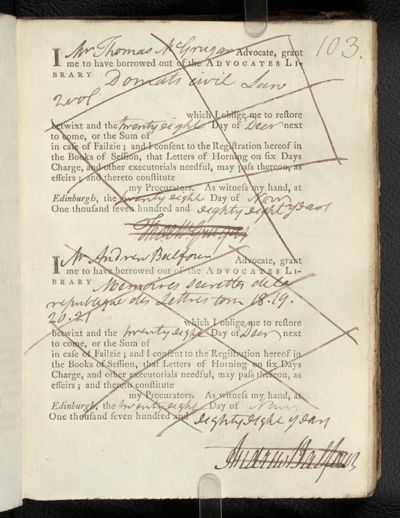 103.
I Mr Thomas McGrugar Advocate, grant
me to have borrowed out of the ADVOCATES LI-
BRARY Domats civil Law
2 vol
which I oblige me to reſtore
betwixt and the twenty eight Day of Decr next
to come, or the Sum of
in caſe of Failzie; and I conſent to the Regiſtration hereof in
the Books of Seſſion, that Letters of Horning on ſix Days
Charge, and other executorials needful, may paſs thereon, as
effeirs; and thereto conſtitute
my Procurators. As witneſs my hand, at
Edinburgh, the twenty eight Day of Novr
One thouſand ſeven hundred and eighty eight years
Thos McGrugar
I Mr Andrew Balfour Advocate, grant
me to have borrowed out of the ADVOCATES LI-
BRARY Memoires secrettes de la
republique des Lettres tom 18.19.
20.21
which I oblige me to reſtore
betwixt and the twenty eight Day of Decr next
to come, or the Sum of
in caſe of Failzie; and I conſent to the Regiſtration hereof in
the Books of Seſſion, that Letters of Horning on ſix Days
Charge, and other executorials needful, may paſs thereon, as
effeirs; and thereto conſtitute
my Procurators. As witneſs my hand, at
Edinburgh, the twenty eight Day of Novr
One thouſand ſeven hundred and eighty eight years
Andrew Balfour